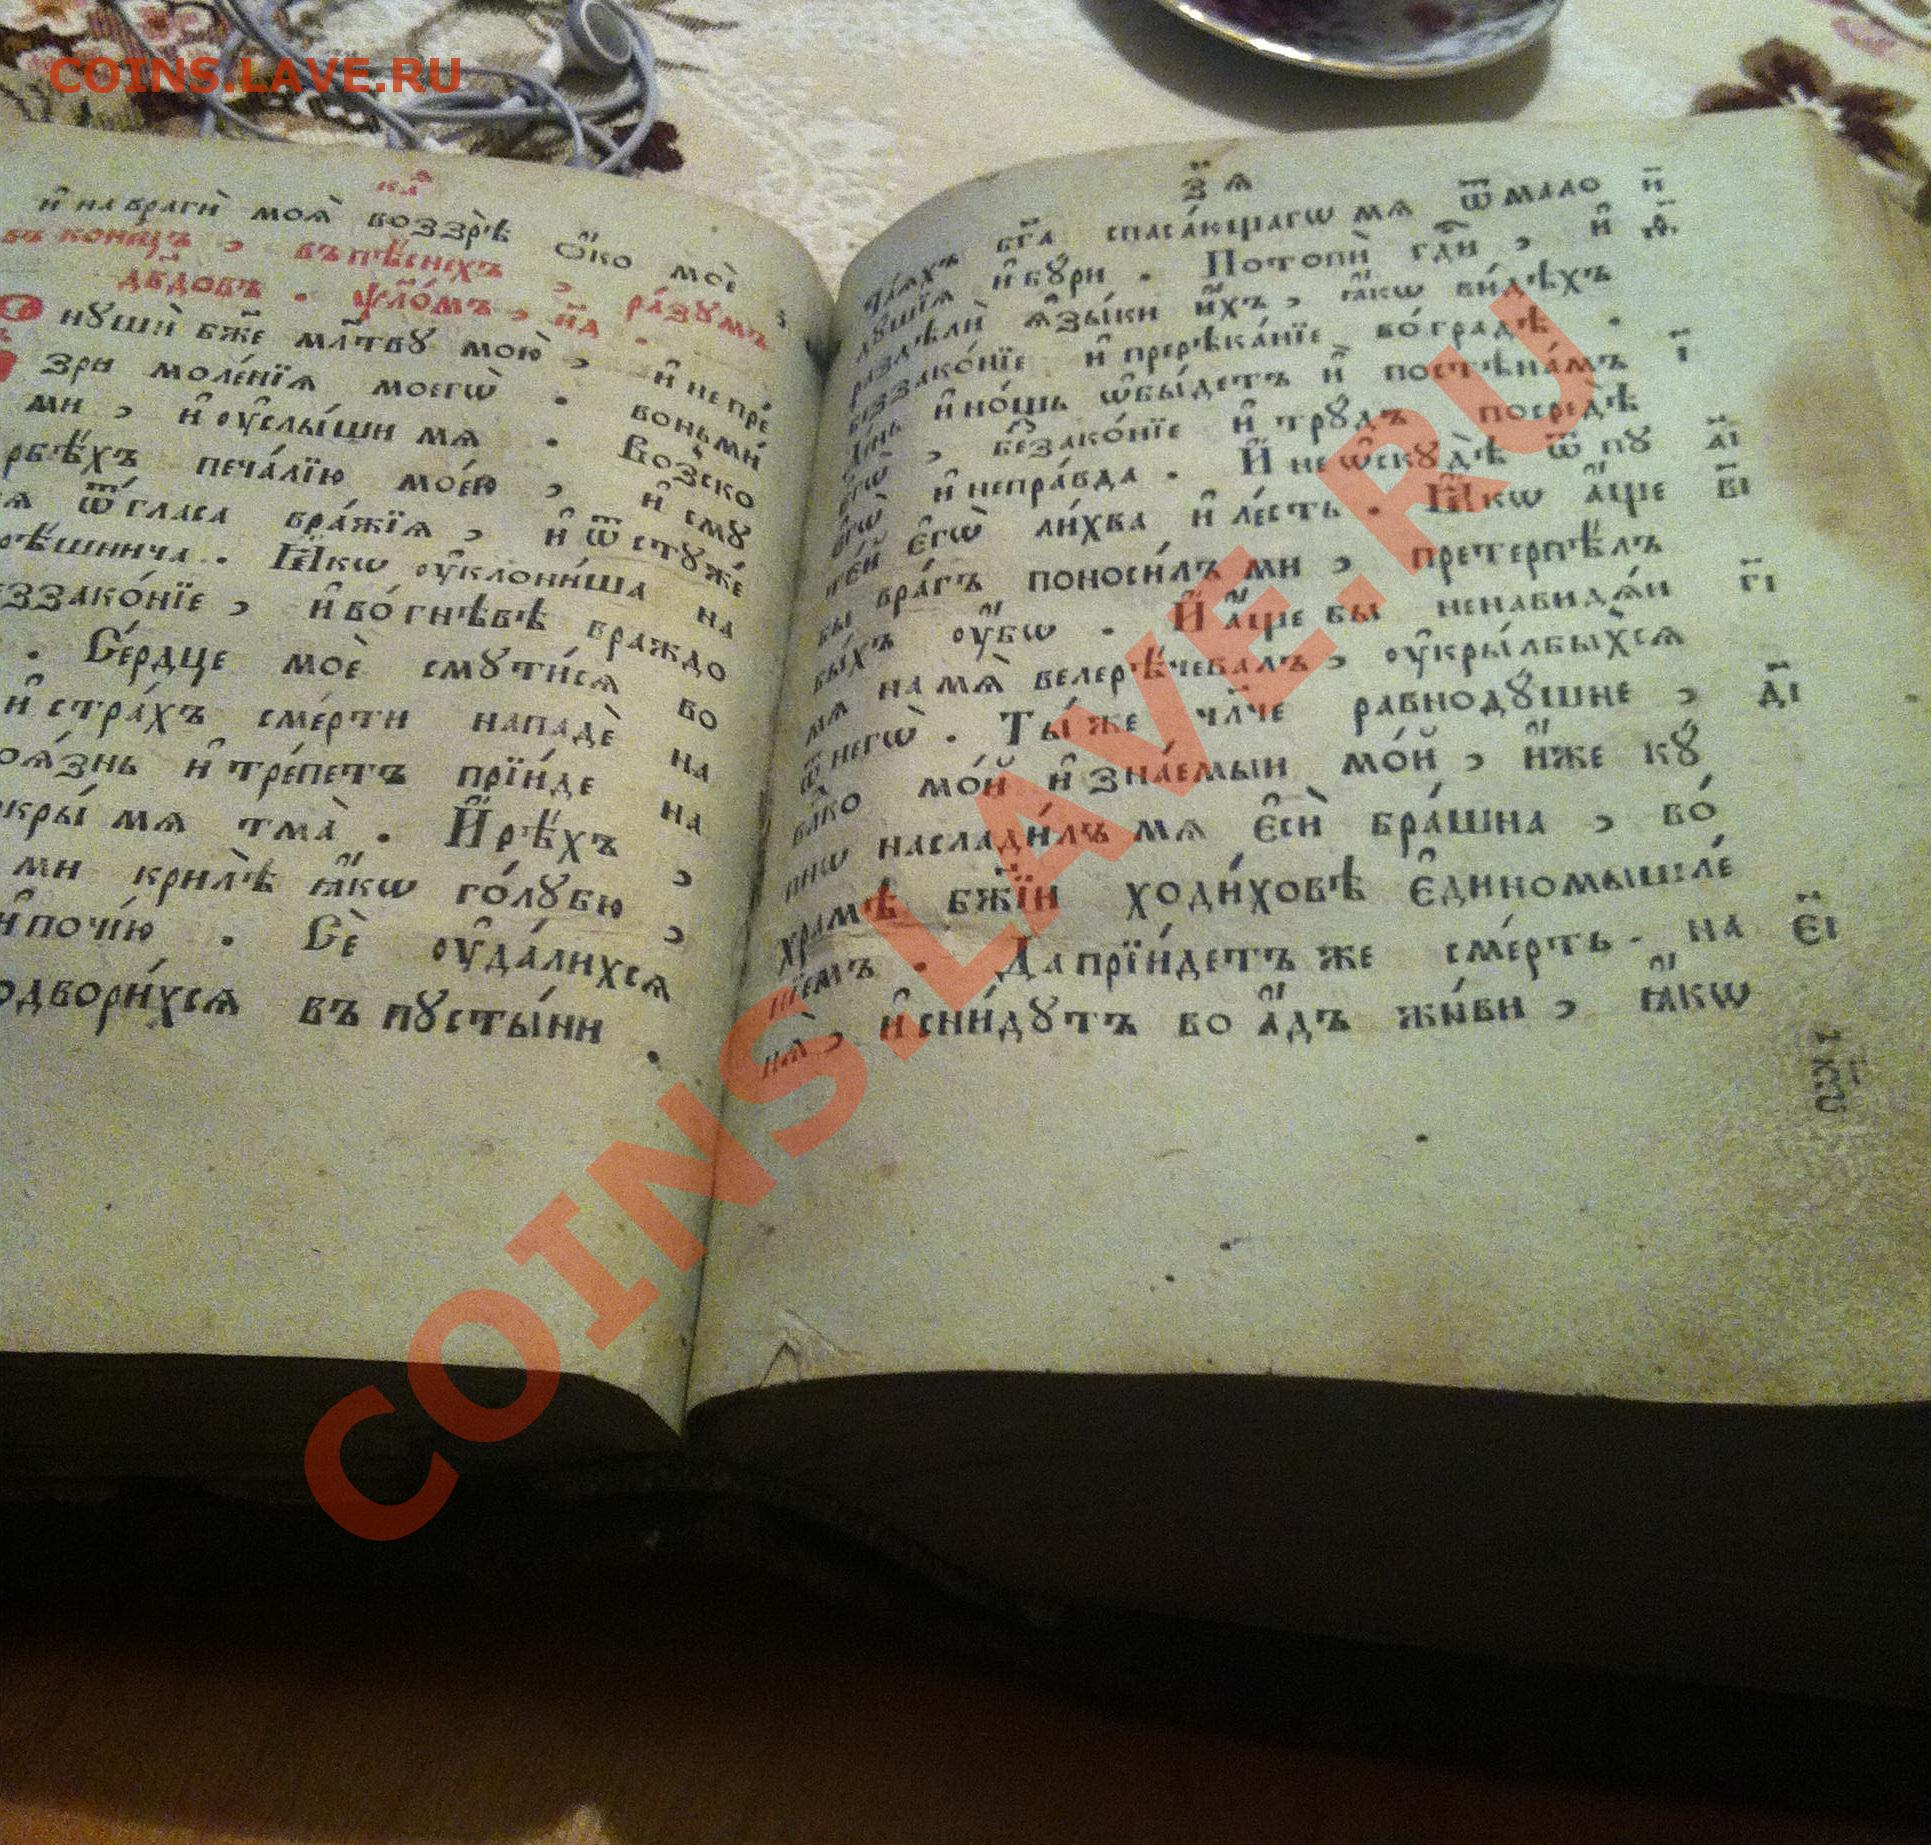 COINS.LAVE.RU
и҆ на врагѝ моѧ̀ воззрѣ̀ ѻ҆́ко моѐ
въ коне́цъ , въ пѣ́снехъ , ра́зумъ
дв҃довъ . ѱло́мъ , н҃д .
нꙋшѝ бж҃е мл҃твꙋ мою̀ , и҆ не пре́
зри моле́нїѧ моегѡ̀ . воньми́
ми , и҆ ᲂу҆слы́ши мѧ . Возско
рбѣ́хъ печа́лїю мое́ю , и҆ смꙋ
ѧ ѿ гласа вра́жїѧ , и҆ ѿ стꙋже́
рѣ́шнича . Ꙗ҆́кѡ ᲂу҆клони́ша на
ззако́нїе , и҆ во́ гнѣвѣ враждо
. Се́рдце моѐ смꙋти́сѧ во
и҆ стра́хъ сме́рти нападѐ на
оѧ́знь и҆ тре́петъ прїи́де на
кры́ мѧ тма̀ . И҆ рѣ́хъ ,
ми крилѣ̀ ꙗ҆́кѡ го́лꙋбю ,
и҆ почі́ю . Сѐ ᲂу҆да́лихсѧ
одвори́хсѧ въ пꙋсты́ни .
з҃ѧ
ча́ѧхъ бг҃а спаса́ющагѡ мѧ ѿ мало и҃
дꙋшїѧ и҆ бꙋ́ри . Потопѝ гдⷭ҇и , и҆ ѳ҃
раздѣлѝ ѧ҆зы́ки и҆́хъ , ꙗ҆́кѡ ви́дѣхъ
беззако́нїе и҆ пререка́нїе во́ градѣ .
дн҃ь и҆ но́щь ѡ҆бы́детъ и҆̀ по стѣна́мъ і҃
є҆гѡ̀ , беззако́нїе и҆ трꙋ́дъ посредѣ̀ а҃і
є҆гѡ̀ и҆ непра́вда . И҆ не ѡ҆скꙋдѣ̀ ѿ пꙋ
те́й є҆гѡ̀ ли́хва и҆ ле́сть . Ꙗ҆́кѡ а҆́ще в҃і
бы вра́гъ поноси́лъ ми , претерпѣ́лъ
бы́хъ ᲂу҆́бѡ . И҆ а҆́ще бы ненави́дѧй г҃і
мѧ на мѧ̀ велерѣ́чевалъ , ᲂу҆кры́лбыхсѧ
ѿ негѡ̀ . Ты́ же чл҃че равнодꙋ́шне , д҃і
влⷣко мо́й и҆ зна́емый мо́й , и҆́же кꙋ́
пнѡ наслади́лъ мѧ є҆сѝ бра́шна , во́
храмѣ бж҃їи ходи́ховѣ є҆диномышле́
нїемъ . Да прїи́детъ же сме́рть на є҃і
нѧ̀ , и҆ сни́дꙋтъ во а҆́дъ жи́ви , ꙗ҆́кѡ
COINS.LAVE.RU